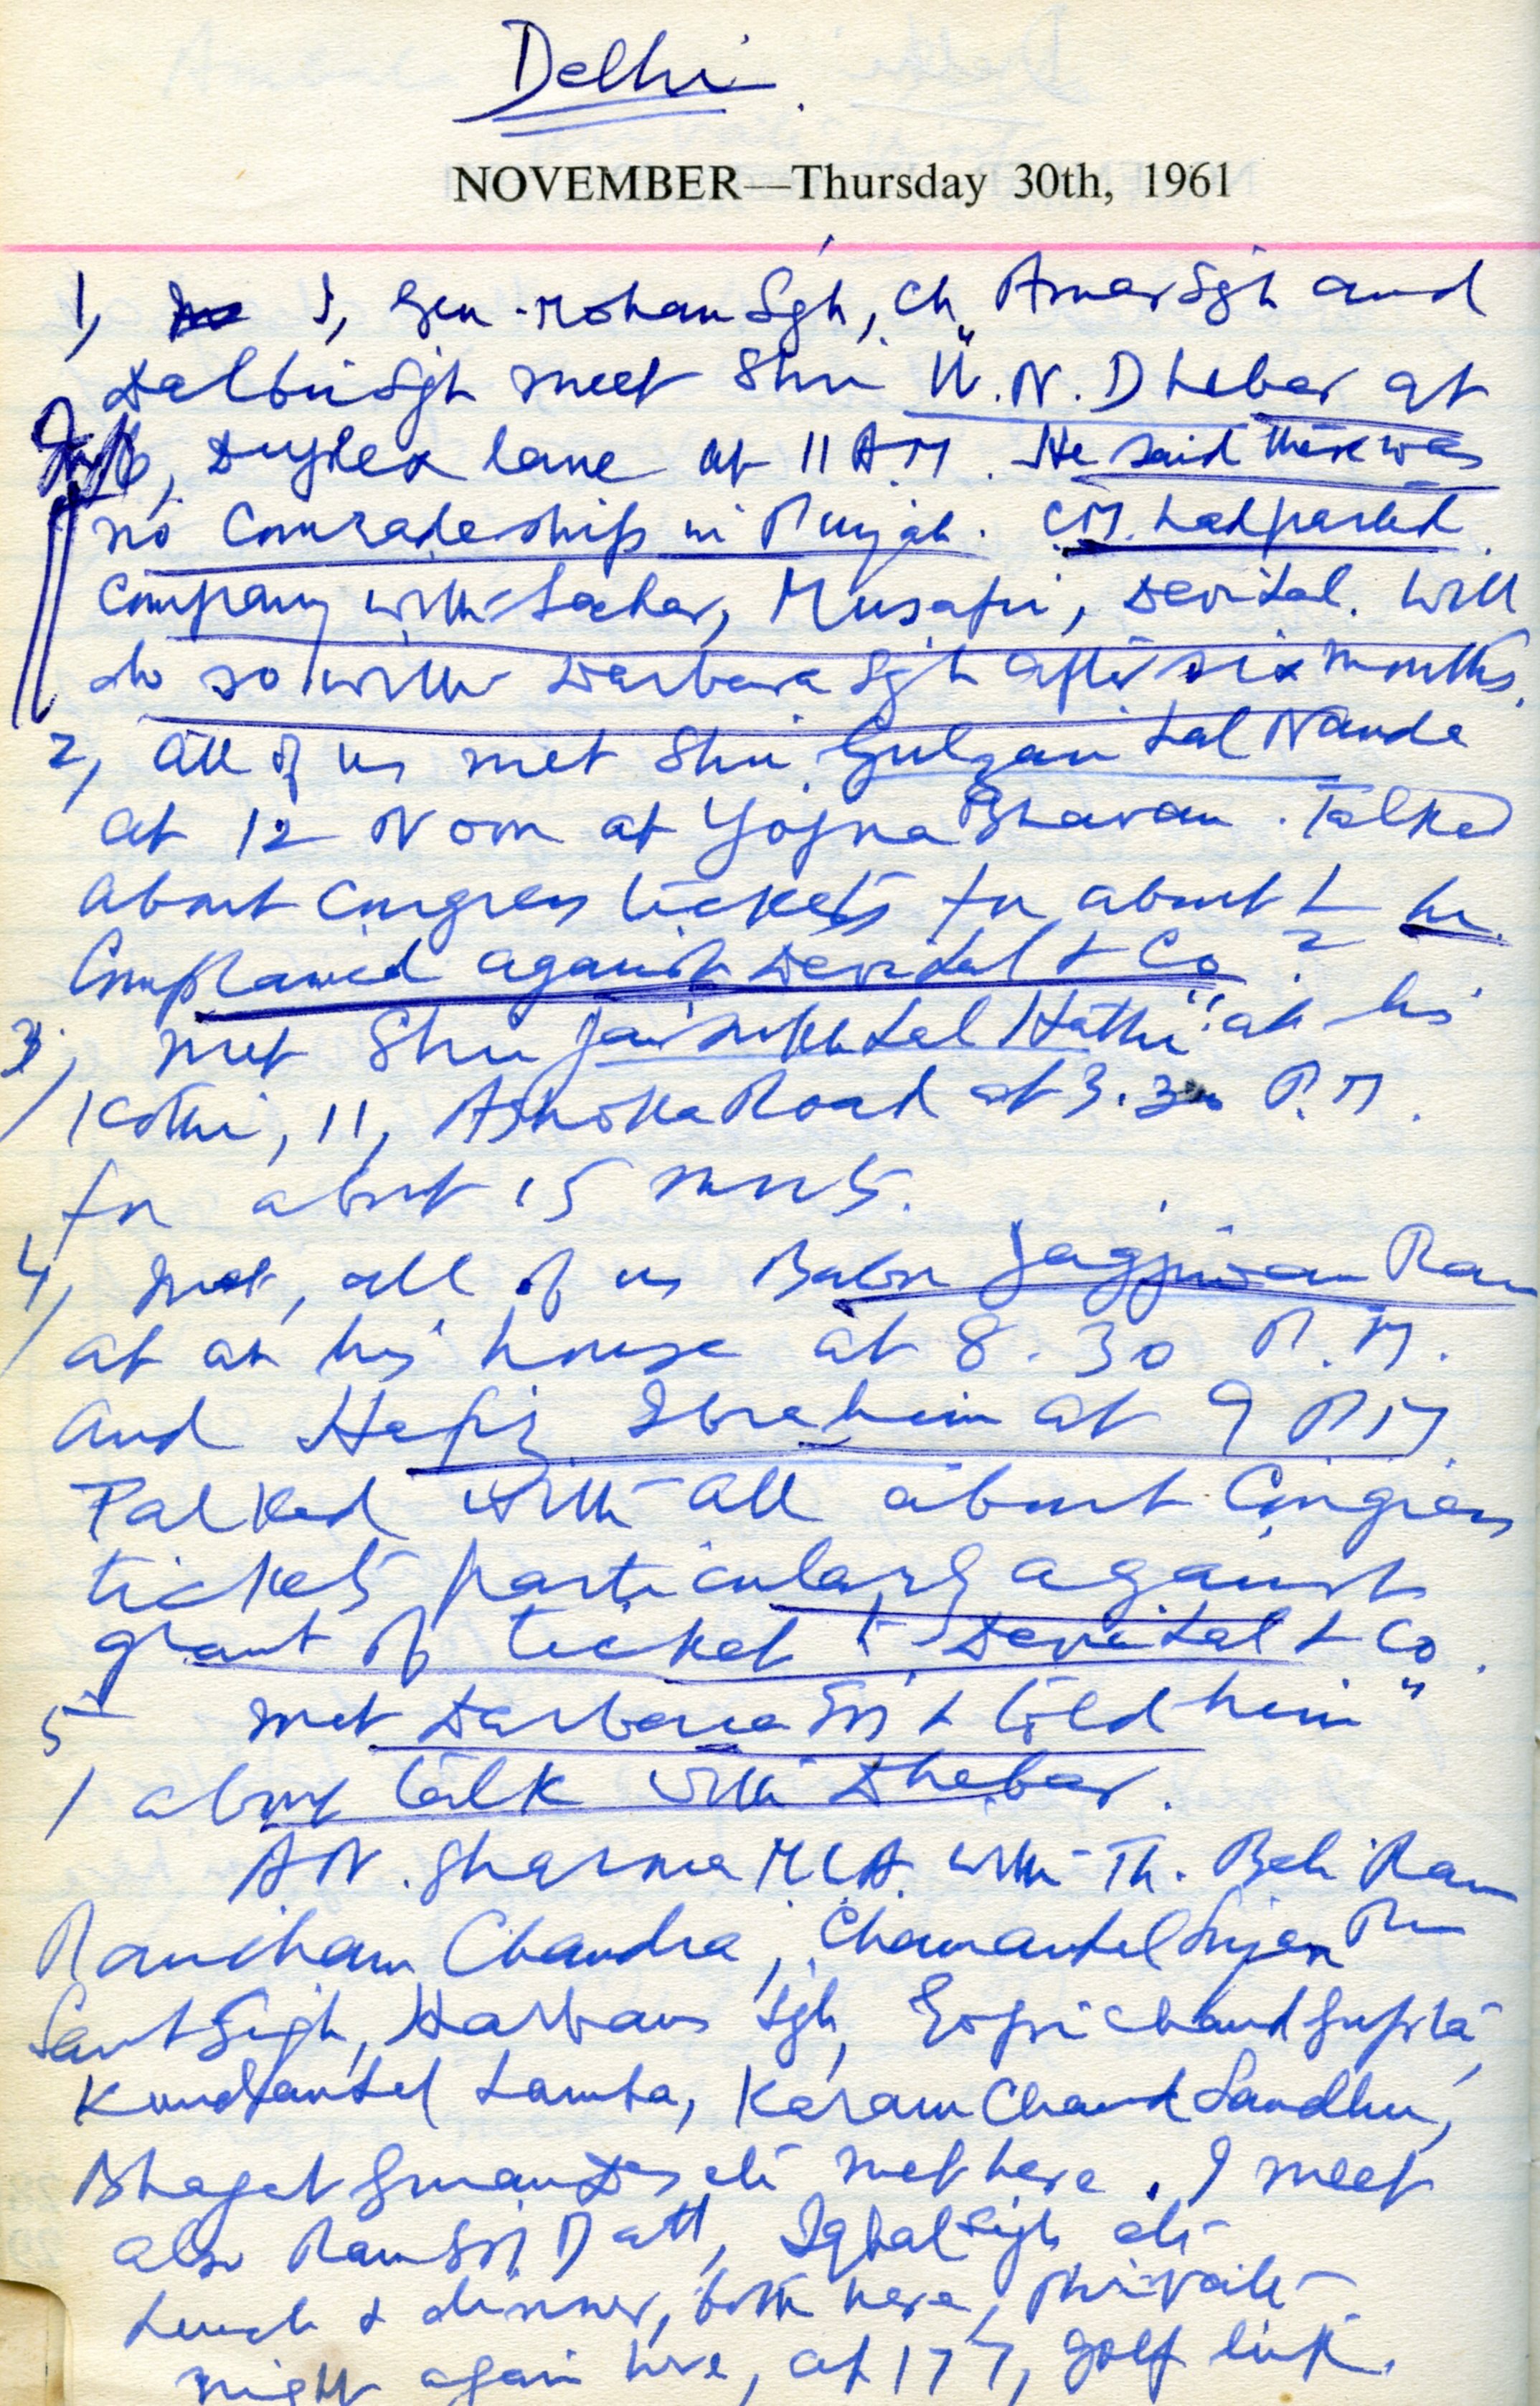 Delhi.
NOVEMBER—Thursday 30th, 1961
1, I, Gen. Mohan Sgh, Ch. Amar Sgh and
Dalbir Sgh meet Shri U.N. Dhebar at
6, Duplex lane at 11 A.M. He said there was
no Comradeship in Punjab. C.M. had parted
Company with Sachar, Musafir, Devi Lal. Will
do so with Darbara Sgh after six months.
2, All of us met Shri Gulzari Lal Nanda
at 12 Noon at Yojna Bhavan. Talked
about Congress tickets for about he
Complained against Devi Lal & Co
3, Met Shri Jaisukh Lal Hathi at his
Kothi, 11, Ashoka Road at 3.30 P.M.
for about 15 minuts.
4, Met, all of us Babu Jagjiwan Ram
at his house at 8.30 P.M.
and Hafiz Ibrahim at 9 P.M.
Talked with all about Congress
tickets particularly against
grant of ticket to Devi Lal & Co.
5 Met Darbara & told him
about talk with Dhebar.
A.N. Sharma M.L.A. with Th. Beli Ram
Ram Chandra, Chaman Lal
Sant Sigh, Harbans Sgh, Gopi Chand Gupta,
Kundan Lal Lamba, Karam Chand Sandhu,
Bhagat Guran Das etc met here. I meet
also Ram Datt, Iqbal Sigh etc
Lunch & dinner, both here, private
night again here, at 177, golf link.